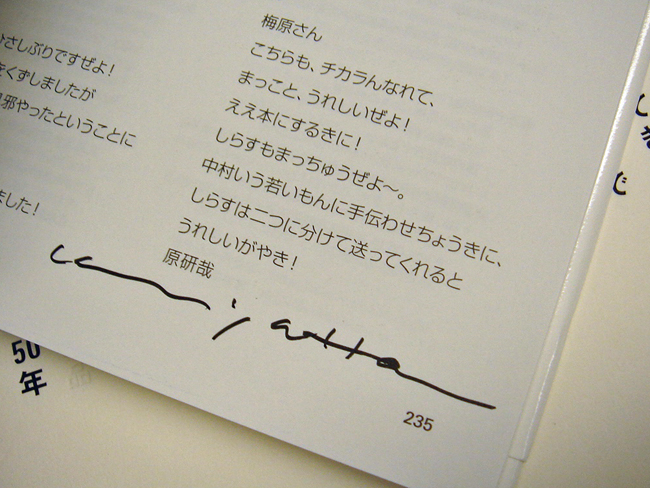 ひさしぶりですぜよ!
をくずしましたが
邪やったということに
ました!
梅原さん
こちらも、チカラんなれて、
まっこと、うれしいぜよ!
ええ本にするきに!
しらすもまっちゅうぜよ〜。
中村いう若いもんに手伝わせちょうきに、
しらすは二つに分けて送ってくれると
うれしいがやき!
原研哉
235
50
年